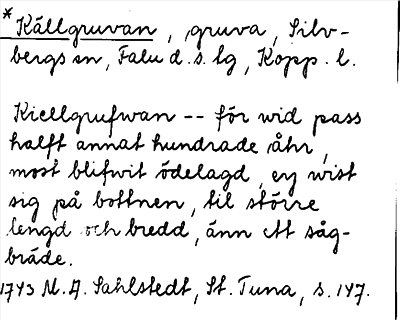 * Källgruvan, gruva, Silv-
bergs sn, Falu d.s. lg, Kopp. l.
Kiellgrufwan -- för wid pass
halft annat hundrade åhr,
most blifwit ödelagd, ey wist
sig på bottnen, til större
lengd och bredd, änn ett såg-
bräde.
1743 M.A. Sahlstedt, St. Tuna, s. 147.